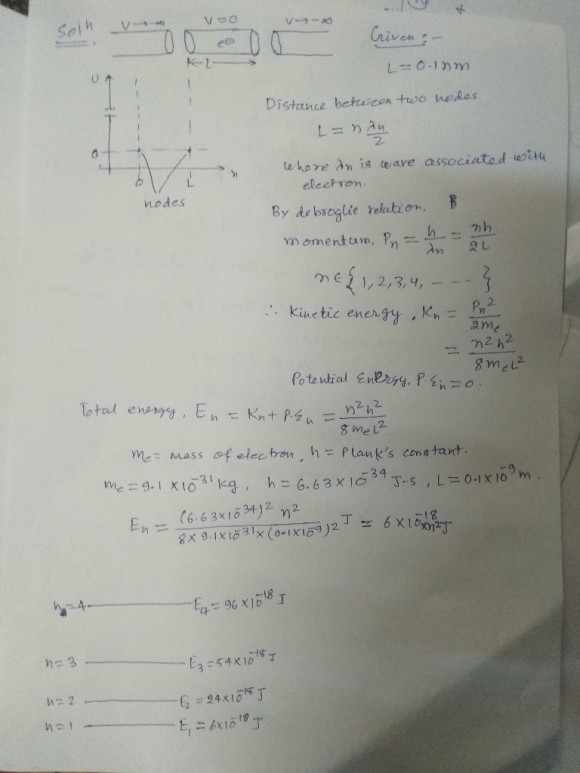 Solⁿ.
V→-∞ V=0 V→-∞
Given :-
e⊖
K-L→
L=0.1nm
U
Distance between two nodes
L = n λn/2
0
where λn is wave associated with
x
electron.
0 L
nodes
By debroglie relation.
momentum, Pn = h/λn = nh/2L
n∈{1,2,3,4, - - - - }
∴ Kinetic energy, Kn = Pn²/2me
= n²h²/8meL²
Potential Energy, P.En = 0.
Total energy, En = Kn + P.En = n²h²/8meL²
me = mass of electron, h = Plank's constant.
me = 9.1 × 10⁻³¹ kg, h = 6.63 × 10⁻³⁴ J-s, L = 0.1×10⁻⁹ m.
En = (6.63×10⁻³⁴)² n² / 8×9.1×10⁻³¹×(0.1×10⁻⁹)² J = 6×10⁻¹⁸×n² J
n=4 E4 = 96×10⁻¹⁸ J
n=3 E3 = 54×10⁻¹⁸ J
n=2 E2 = 24×10⁻¹⁸ J
n=1 E1 = 6×10⁻¹⁸ J